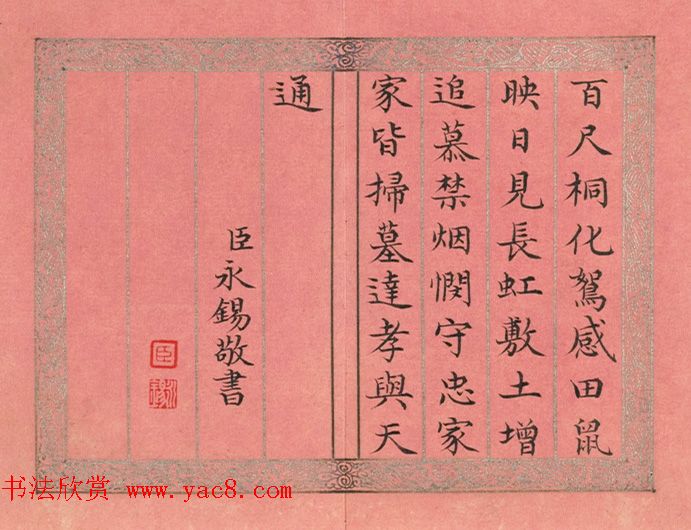 百尺桐化鴽感田鼠
映日見長虹敷土增
追慕禁烟憫守忠家
家皆掃墓達孝與天
通
臣永錫敬書
臣
永錫
书法欣赏 www.yac8.com